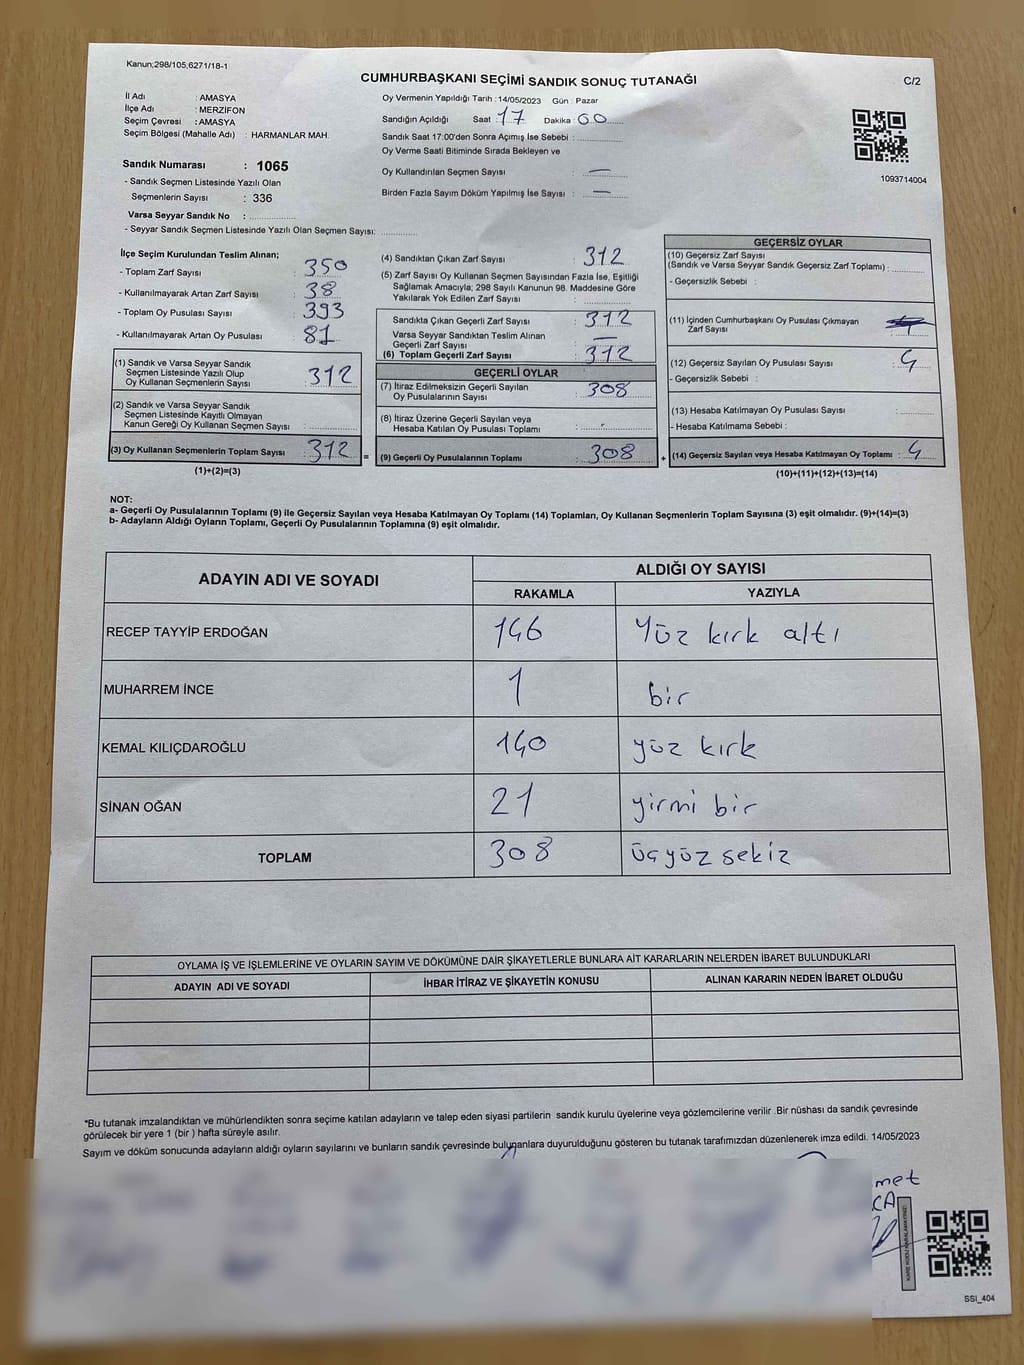 Kanun;298/105,6271/18-1
CUMHURBAŞKANI SEÇİMİ SANDIK SONUÇ TUTANAĞI
C/2
İl Adı : AMASYA
İlçe Adı : MERZİFON
Seçim Çevresi : AMASYA
Seçim Bölgesi (Mahalle Adı) : HARMANLAR MAH.
Sandık Numarası : 1065
- Sandık Seçmen Listesinde Yazılı Olan
Seçmenlerin Sayısı : 336
Varsa Seyyar Sandık No :
- Seyyar Sandık Seçmen Listesinde Yazılı Olan Seçmen Sayısı:
Oy Vermenin Yapıldığı Tarih : 14/05/2023 Gün : Pazar
Sandığın Açıldığı Saat : 17 Dakika : 00
Sandık Saat 17:00'den Sonra Açımış İse Sebebi :
Oy Verme Saati Bitiminde Sırada Bekleyen ve
Oy Kullandırılan Seçmen Sayısı : —
Birden Fazla Sayım Döküm Yapılmış İse Sayısı : —
1093714004
İlçe Seçim Kurulundan Teslim Alınan;
- Toplam Zarf Sayısı : 350
- Kullanılmayarak Artan Zarf Sayısı : 38
- Toplam Oy Pusulası Sayısı : 393
- Kullanılmayarak Artan Oy Pusulası : 81
(1) Sandık ve Varsa Seyyar Sandık
Seçmen Listesinde Yazılı Olup
Oy Kullanan Seçmenlerin Sayısı : 312
(2) Sandık ve Varsa Seyyar Sandık
Seçmen Listesinde Kayıtlı Olmayan
Kanun Gereği Oy Kullanan Seçmen Sayısı :
(3) Oy Kullanan Seçmenlerin Toplam Sayısı : 312
(1)+(2)=(3)
(4) Sandıktan Çıkan Zarf Sayısı : 312
(5) Zarf Sayısı Oy Kullanan Seçmen Sayısından Fazla İse, Eşitliği
Sağlamak Amacıyla; 298 Sayılı Kanunun 98. Maddesine Göre
Yakılarak Yok Edilen Zarf Sayısı :
Sandıkta Çıkan Geçerli Zarf Sayısı : 312
Varsa Seyyar Sandıktan Teslim Alınan
Geçerli Zarf Sayısı : —
(6) Toplam Geçerli Zarf Sayısı : 312
GEÇERLİ OYLAR
(7) İtiraz Edilmeksizin Geçerli Sayılan
Oy Pusulalarının Sayısı : 308
(8) İtiraz Üzerine Geçerli Sayılan veya
Hesaba Katılan Oy Pusulası Toplamı :
= (9) Geçerli Oy Pusulalarının Toplamı : 308
GEÇERSİZ OYLAR
(10) Geçersiz Zarf Sayısı
(Sandık ve Varsa Seyyar Sandık Geçersiz Zarf Toplamı) :
- Geçersizlik Sebebi :
(11) İçinden Cumhurbaşkanı Oy Pusulası Çıkmayan
Zarf Sayısı :
(12) Geçersiz Sayılan Oy Pusulası Sayısı : 4
- Geçersizlik Sebebi :
(13) Hesaba Katılmayan Oy Pusulası Sayısı :
- Hesaba Katılmama Sebebi :
+ (14) Geçersiz Sayılan veya Hesaba Katılmayan Oy Toplamı : 4
(10)+(11)+(12)+(13)=(14)
NOT:
a- Geçerli Oy Pusulalarının Toplamı (9) ile Geçersiz Sayılan veya Hesaba Katılmayan Oy Toplamı (14) Toplamları, Oy Kullanan Seçmenlerin Toplam Sayısına (3) eşit olmalıdır. (9)+(14)=(3)
b- Adayların Aldığı Oyların Toplamı, Geçerli Oy Pusulalarının Toplamına (9) eşit olmalıdır.
ADAYIN ADI VE SOYADI
ALDIĞI OY SAYISI
RAKAMLA YAZIYLA
RECEP TAYYİP ERDOĞAN 146 Yüz kırk altı
MUHARREM İNCE 1 bir
KEMAL KILIÇDAROĞLU 140 yüz kırk
SİNAN OĞAN 21 yirmi bir
TOPLAM 308 üçyüz sekiz
OYLAMA İŞ VE İŞLEMLERİNE VE OYLARIN SAYIM VE DÖKÜMÜNE DAİR ŞİKAYETLERLE BUNLARA AİT KARARLARIN NELERDEN İBARET BULUNDUKLARI
ADAYIN ADI VE SOYADI İHBAR İTİRAZ VE ŞİKAYETİN KONUSU ALINAN KARARIN NEDEN İBARET OLDUĞU
*Bu tutanak imzalandıktan ve mühürlendikten sonra seçime katılan adayların ve talep eden siyasi partilerin sandık kurulu üyelerine veya gözlemcilerine verilir .Bir nüshası da sandık çevresinde
görülecek bir yere 1 (bir ) hafta süreyle asılır.
Sayım ve döküm sonucunda adayların aldığı oyların sayılarını ve bunların sandık çevresinde bulunanlara duyurulduğunu gösteren bu tutanak tarafımızdan düzenlenerek imza edildi. 14/05/2023
met
CA
SSI_404